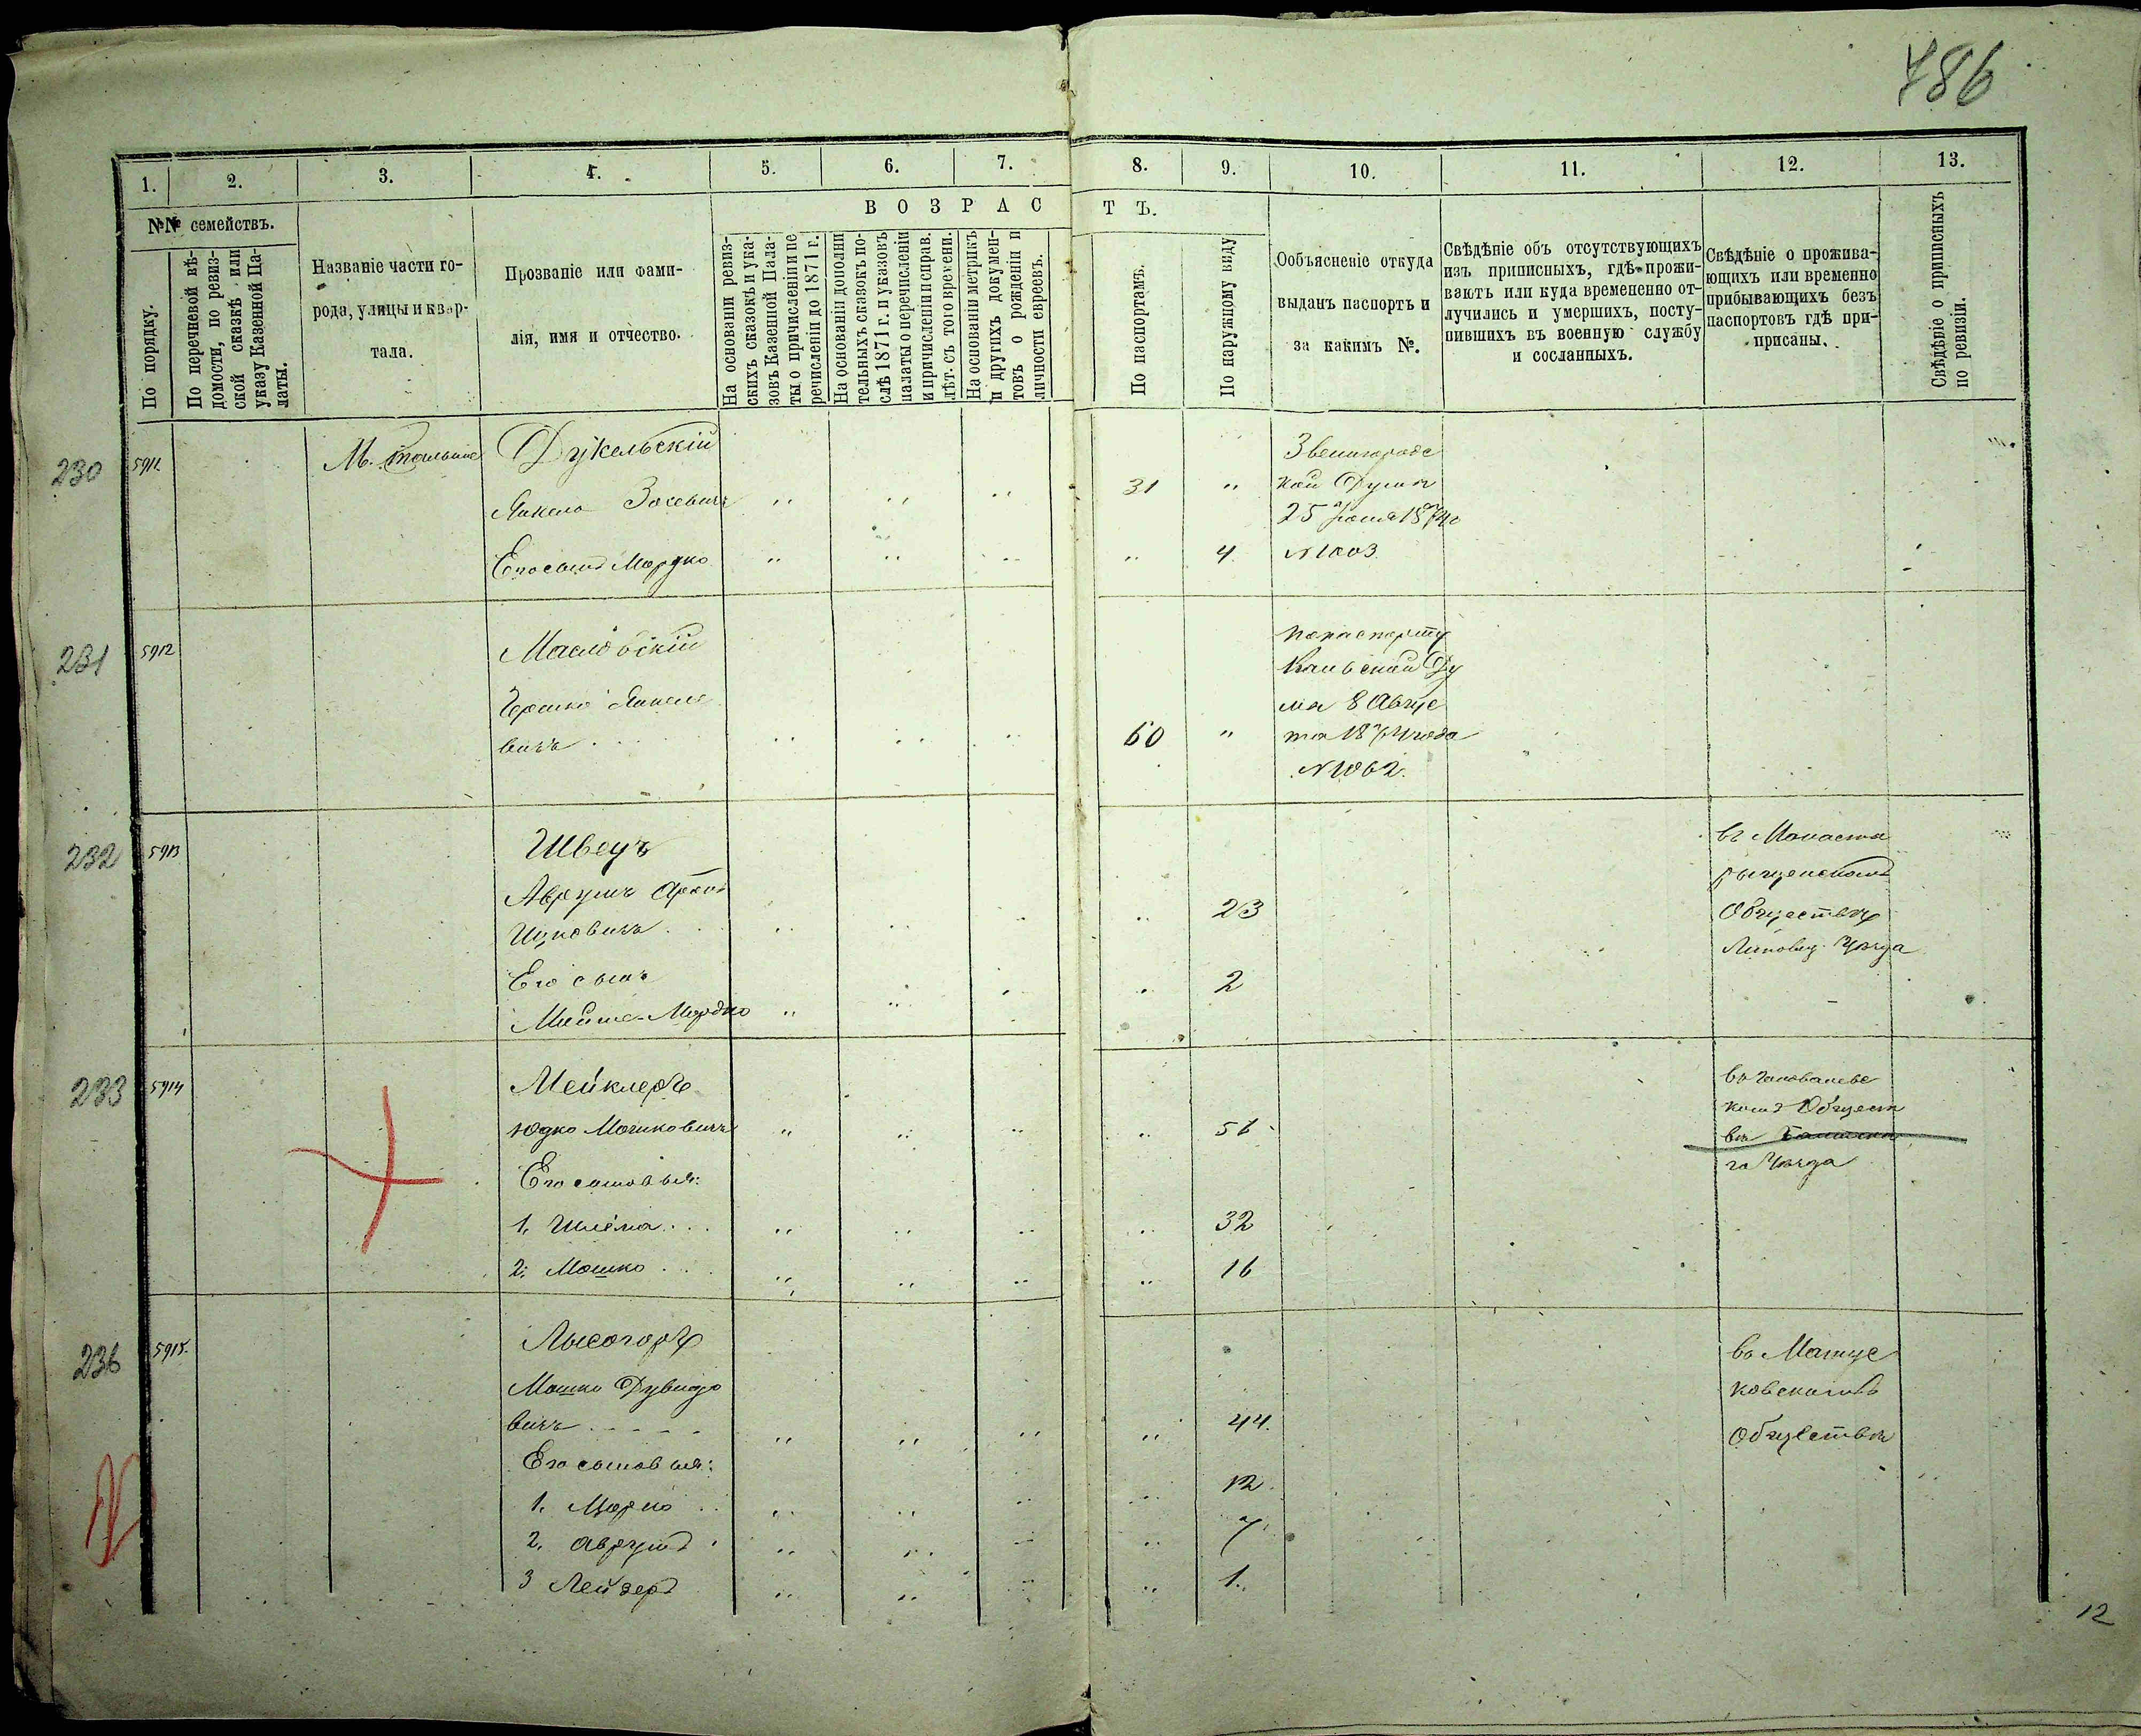 786
1.
2.
3.
4.
5.
6.
7.
8.
9.
10.
11.
12.
13.
№№ семействъ.
В О З Р А С Т Ъ.
По порядку.
По перечневой вѣ-
домости, по ревиз-
ской сказкѣ или
указу Казенной Па-
латы.
Названіе части го-
рода, улицы и квар-
тала.
Прозваніе или фами-
лія, имя и отчество.
На основаніи ревиз-
скихъ сказокъ и ука-
зовъ Казенной Пала-
ты о причисленіи и пе
речисленіи до 1871 г.
На основаніи дополни
тельныхъ сказокъ по-
слѣ 1871 г. и указовъ
палаты о перечисленіи
и причисленіи и справ.
лѣт. съ того времени.
На основаніи метрикъ
и другихъ докумен-
товъ о рожденіи и
личности евреевъ.
По паспортамъ.
По наружному виду
Ообъясненіе откуда
выданъ паспортъ и
за какимъ №.
Свѣдѣніе объ отсутствующихъ
изъ приписныхъ, гдѣ прожи-
ваютъ или куда времененно от-
лучились и умершихъ, посту-
пившихъ въ военную службу
и сосланныхъ.
Свѣдѣніе о прожива-
ющихъ или временно
прибывающихъ безъ
паспортовъ гдѣ при-
присаны.
Свѣдѣніе о приписныхъ
по ревизіи.
230
5911.
М. Тальное
Дукельскій
Звенигородс
Янкель
31
кой Думы
25
Его сынъ Мордко
4
N 1003
231
5912
Масловскій
по паспорту
Каневской Ду
Гершко Янкеле
мы 8 Авгус
вичъ
60
та 1874 года
N 1062.
232
5913
Швецъ
въ Монасты
рыщенскомъ
Аврумъ
23
Обществѣ
Ицковичъ
Липовец. Уѣзда
Его сынъ
2
Мордко
233
5914
Мейклеръ
Юдко Мошковичъ
51
комъ Общест
вѣ
Его сыновья:
го Уѣзда
1. Шлёма
32
2. Мошко
16
236
5915.
Лысогоръ
въ Матус
Мошко Дувидо
ковскомъ
вичъ
44.
Обществѣ
Его сыновья:
1.
12
2. Аврумъ
7.
3 Лейзеръ
1.
12